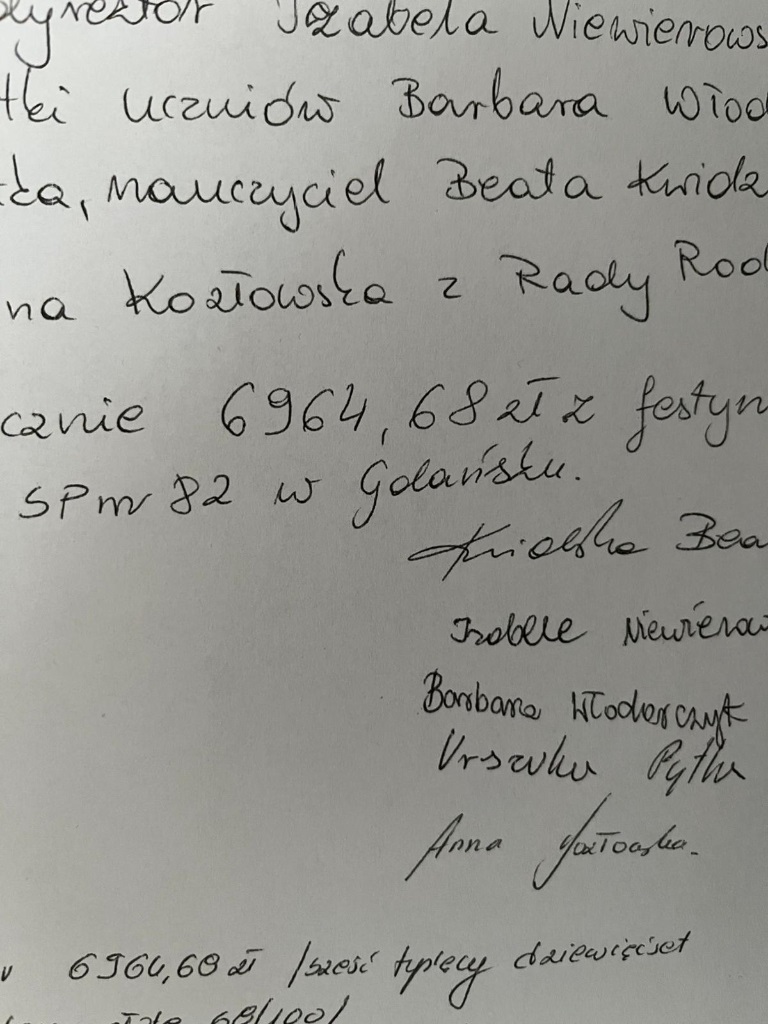 dyrektor Izabela Niewierows
tki uczniów Barbara Włod
ka, nauczyciel Beata Kwidz
na Kozłowska z Rady Rod
cznie 6964,68 zł z festyn
SPnr 82 w Gdańsku.
Kwidzka Bea
Izabela Niewierow
Barbara Włodarczyk
Urszula Pytka
Anna Kozłowska.
6964,68 zł /sześć tysięcy dziewięćset
68/100/